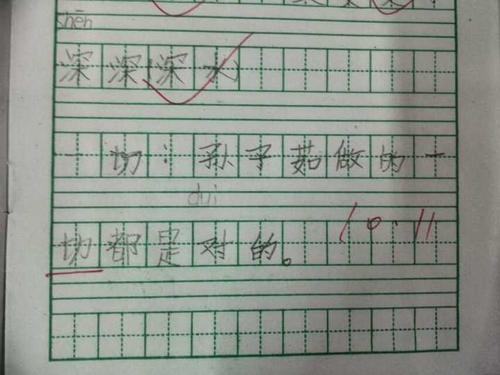 shēn
深深深水
一切：孙子茹做的一
duì
切都是对的。
10.11